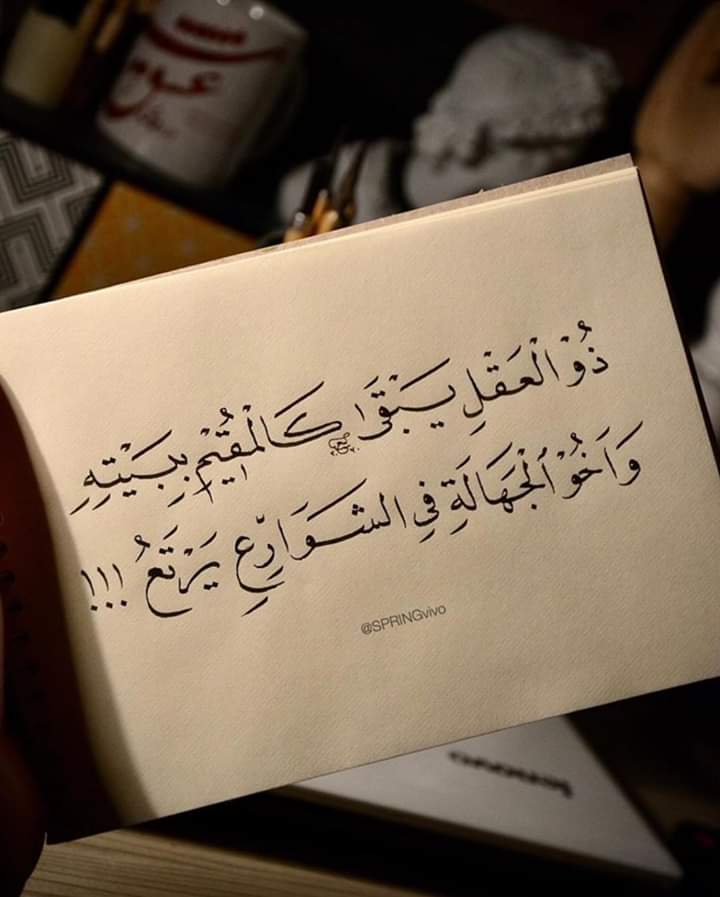 ذُوْ الْعَقْلِ يَبْقَىٰ كَالْمُقِيْمِ بِبَيْتِهِ
وَاَخُوْ ٱلْجَهَالَةِ فِي الشَوَارِعِ يَرْتَعُ !!!
@SPRINGvivo